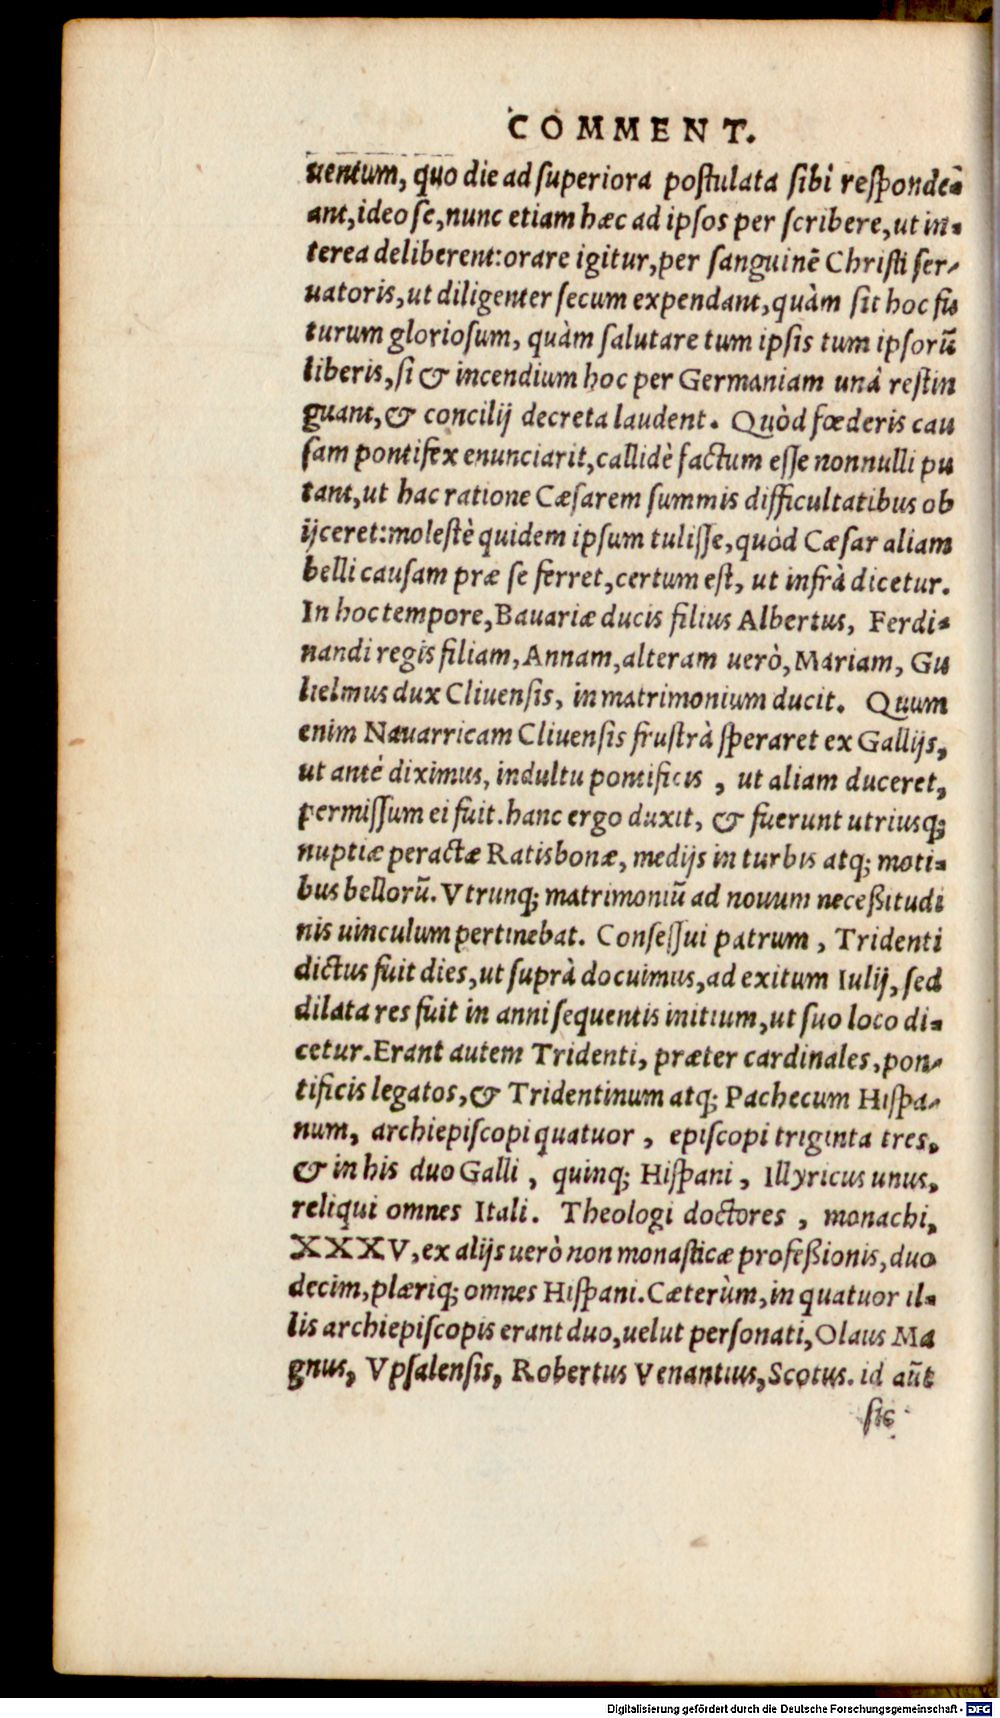 COMMENT.
uentum, quo die ad ſuperiora poſtulata ſibi reſpondeā
ant, ideo ſe, nunc etiam hæc ad ipſos per ſcribere, ut in-
terea deliberent: orare igitur, per ſanguinē Chriſti ſer-
uatoris, ut diligenter ſecum expendant, quàm ſit hoc fu
turum glorioſum, quàm ſalutare tum ipſis tum ipſorū
liberis, ſi & incendium hoc per Germaniam unà reſtin
guant, & concilij decreta laudent. Quòd fœderis cau
ſam pontifex enunciarit, callidè factum eſſe nonnulli pu
tant, ut hac ratione Cæſarem ſummis difficultatibus ob
ijceret: moleſtè quidem ipſum tuliſſe, quòd Cæſar aliam
belli cauſam præ ſe ferret, certum eſt, ut infrà dicetur.
In hoc tempore, Bauariæ ducis filius Albertus, Ferdi-
nandi regis filiam, Annam, alteram uerò, Mariam, Gu
lielmus dux Cliuenſis, in matrimonium ducit. Quum
enim Nauarricam Cliuenſis fruſtrà ſperaret ex Gallijs,
ut antè diximus, indultu pontificis, ut aliam duceret,
permiſſum ei fuit. hanc ergo duxit, & fuerunt utriusq;
nuptiæ peractæ Ratisbonæ, medijs in turbis atq; moti-
bus bellorū. Vtrunq; matrimoniū ad nouum neceßitudi
nis uinculum pertinebat. Conſeſſui patrum, Tridenti
dictus fuit dies, ut ſuprà docuimus, ad exitum Iulij, ſed
dilata res fuit in anni ſequentis initium, ut ſuo loco di-
cetur. Erant autem Tridenti, præter cardinales, pon-
tificis legatos, & Tridentinum atq; Pachecum Hiſpa-
num, archiepiſcopi quatuor, epiſcopi triginta tres,
& in his duo Galli, quinq; Hiſpani, Illyricus unus,
reliqui omnes Itali. Theologi doctores, monachi,
XXXV, ex alijs uerò non monaſticæ profeßionis, duo
decim, plæriq; omnes Hiſpani. Cæterùm, in quatuor il-
lis archiepiſcopis erant duo, uelut perſonati, Olaus Ma
gnus, Vpſalenſis, Robertus Venantius, Scotus. id aūt
ſic
Digitalisierung gefördert durch die Deutsche Forschungsgemeinschaft - DFG